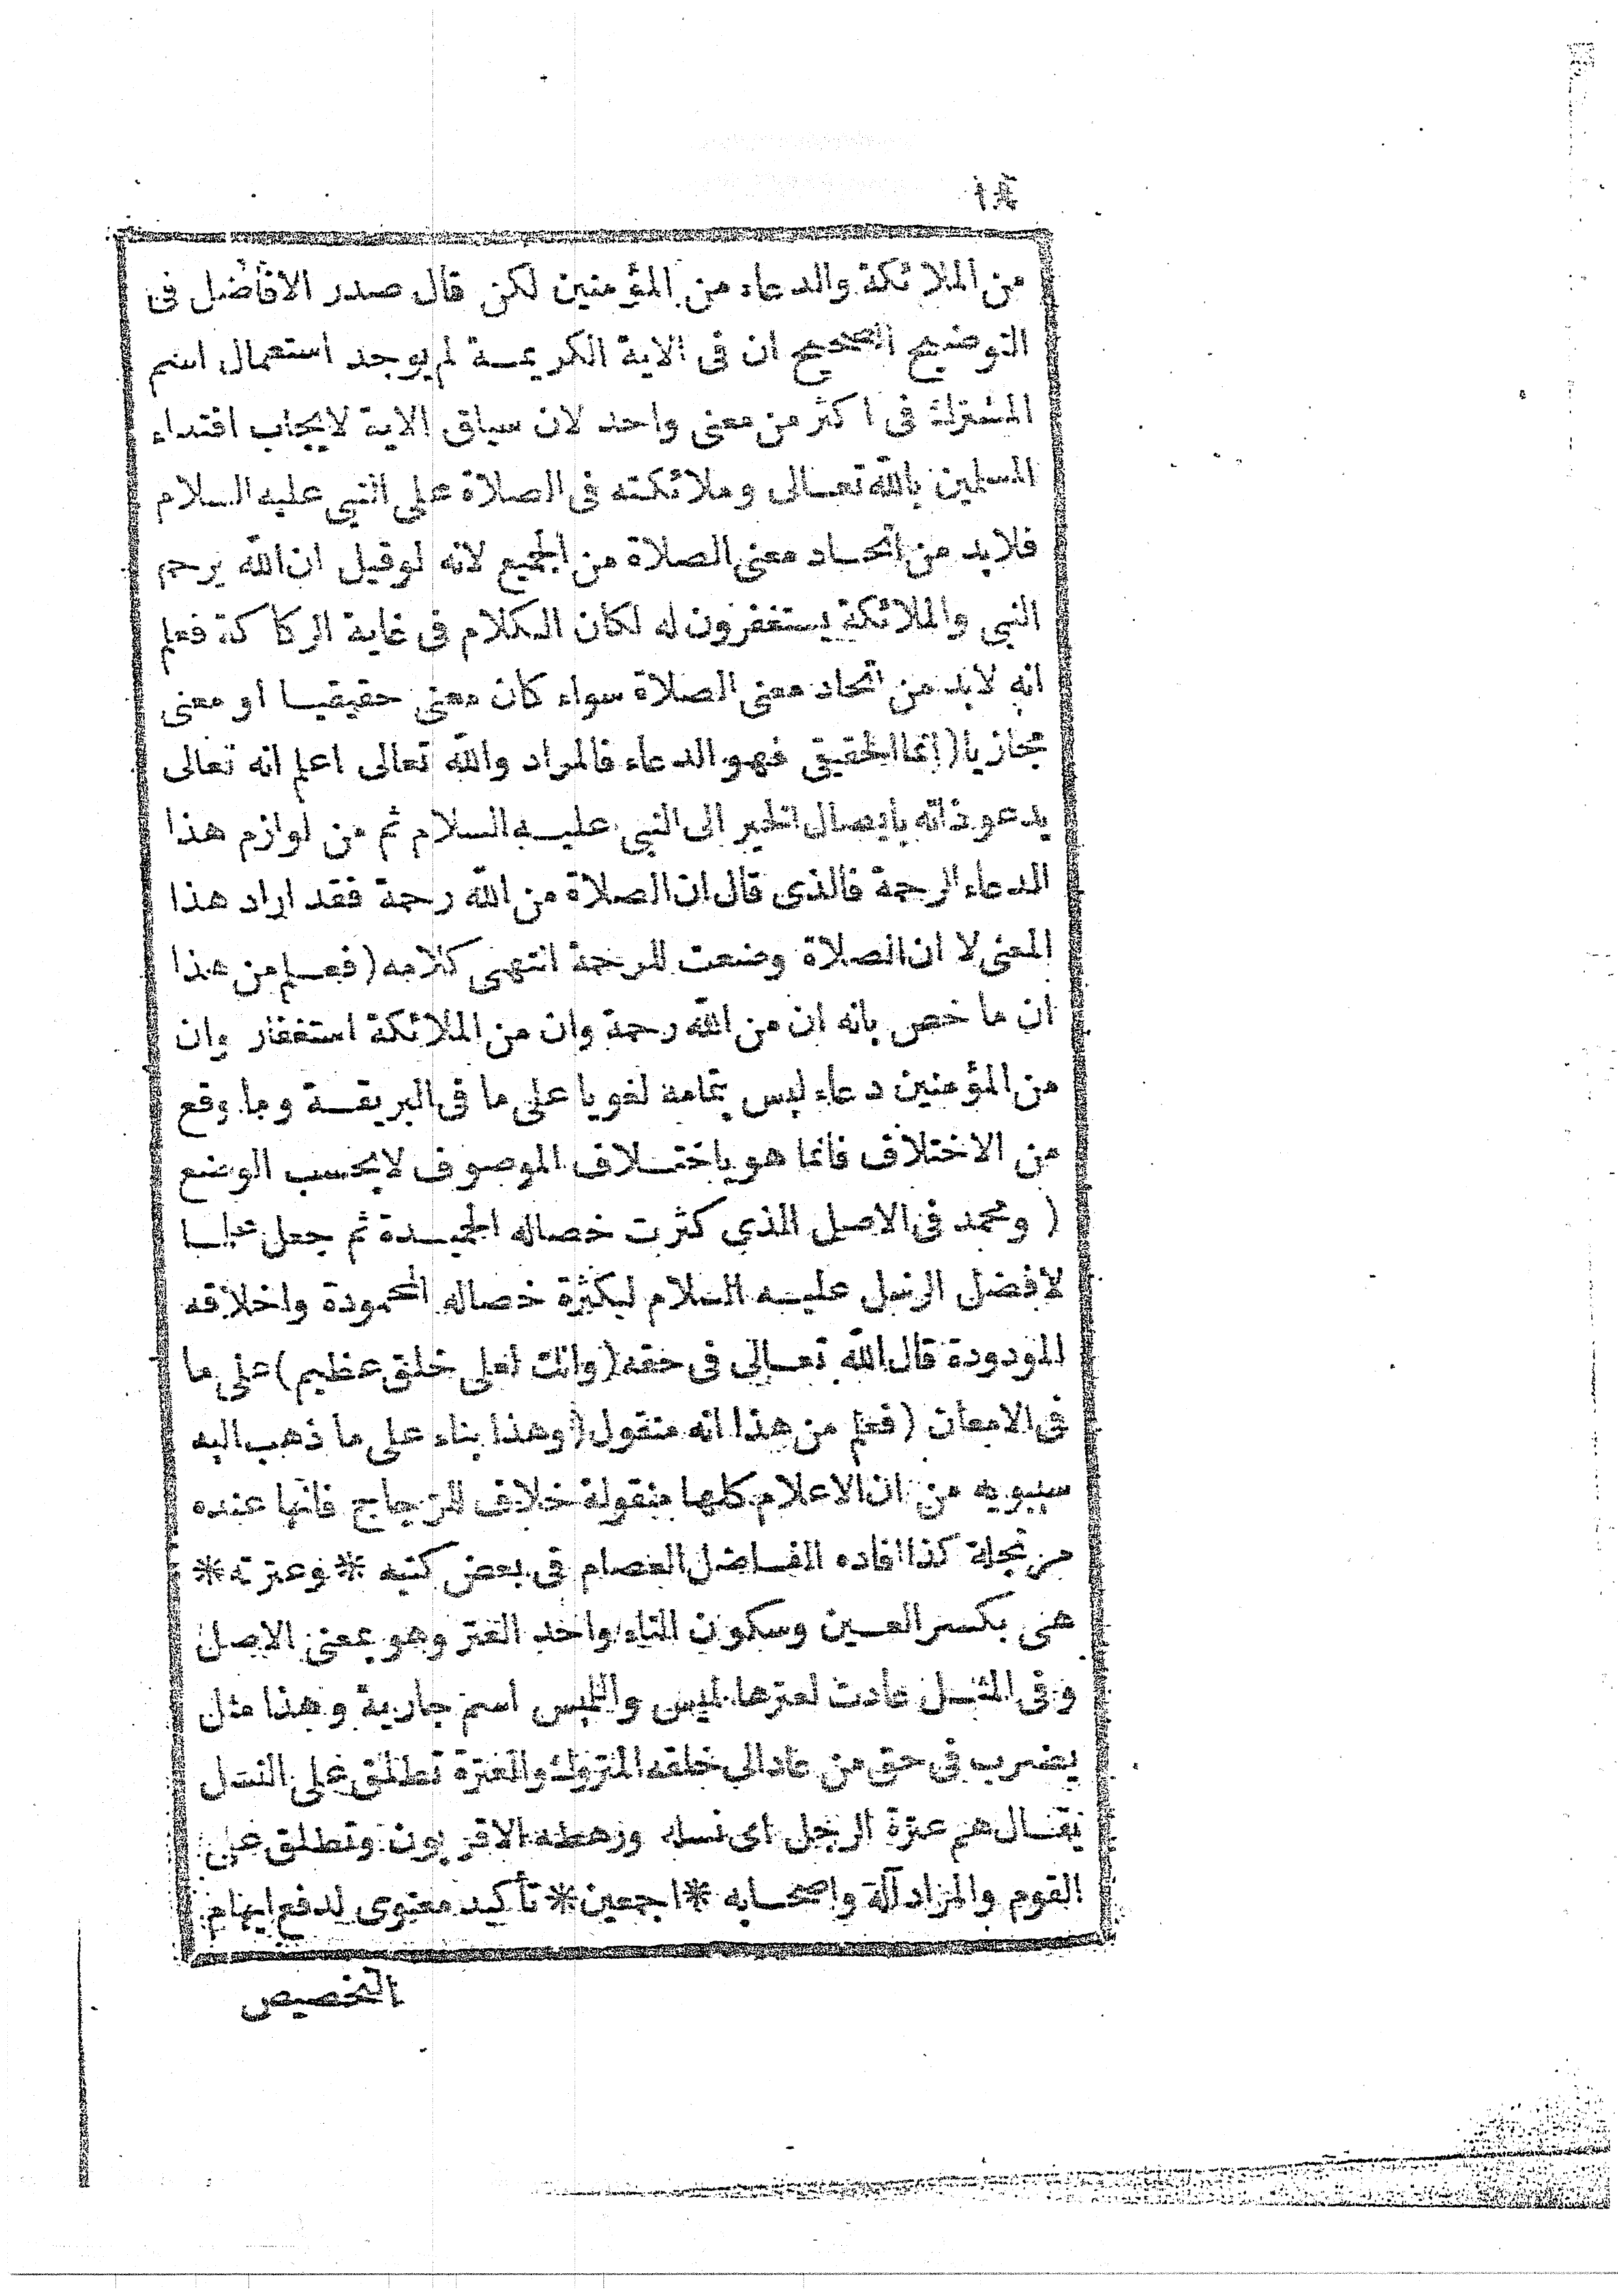 ١٤
من الملائكة والدعاء من المؤمنين لكن قال صدر الافاضل فى
التوضيح الصحيح ان فى الاية الكريمة لم يوجد استعمال اسم
المشترك فى اكثر من معنى واحد لان سياق الاية لايجاب اقتداء
المسلمين بالله تعالى وملائكته فى الصلاة على النبى عليه السلام
فلا بد من اتحاد معنى الصلاة من الجميع لانه لوقيل ان الله يرحم
النبى والملائكة يستغفرون له لكان الكلام فى غاية الركاكة فعلم
انه لابد من اتحاد معنى الصلاة سواء كان معنى حقيقيا او معنى
مجازيا (اما الحقيقى فهو الدعاء فالمراد والله تعالى اعلم انه تعالى
يدعو ذاته بايصال الخير الى النبى عليه السلام ثم من لوازم هذا
الدعاء الرحمة فالذى قال ان الصلاة من الله رحمة فقد اراد هذا
المعنى لا ان الصلاة وضعت للرحمة انتهى كلامه (فعلم من هذا
ان ما خص بانه ان من الله رحمة وان من الملائكة استغفار وان
من المؤمنين دعاء ليس بتمامه لغويا على ما فى البريقة وما وقع
من الاختلاف فانما هو باختلاف الموصوف لا بحسب الوضع
( ومحمد فى الاصل الذى كثرت خصاله الحميدة ثم جعل علما
لافضل الرسل عليه السلام لكثرة خصاله المحمودة واخلاقه
المودودة قال الله تعالى فى حقه (وانك لعلى خلق عظيم) على ما
فى الامعان (فعلم من هذا انه منقول (وهذا بناء على ما ذهب اليه
سيبويه من ان الاعلام كلها منقولة خلاف للزجاج فانها عنده
مرتجلة كذا افاده الفاضل العصام فى بعض كتبه * وعترته *
هى بكسر العين وسكون التاء واحد العتر وهو بمعنى الاصل
وفى المثل عادت لعترها لميس واللميس اسم جارية وهذا مثل
يضرب فى حق من عاد الى خلقه المتروك والعترة تطلق على النسل
يقال هم عترة الرجل اى نسله ورهطه الاقربون وتطلق على
القوم والمراد آله واصحابه * اجمعين * تأكيد معنوى لدفع ايهام
التخصيص